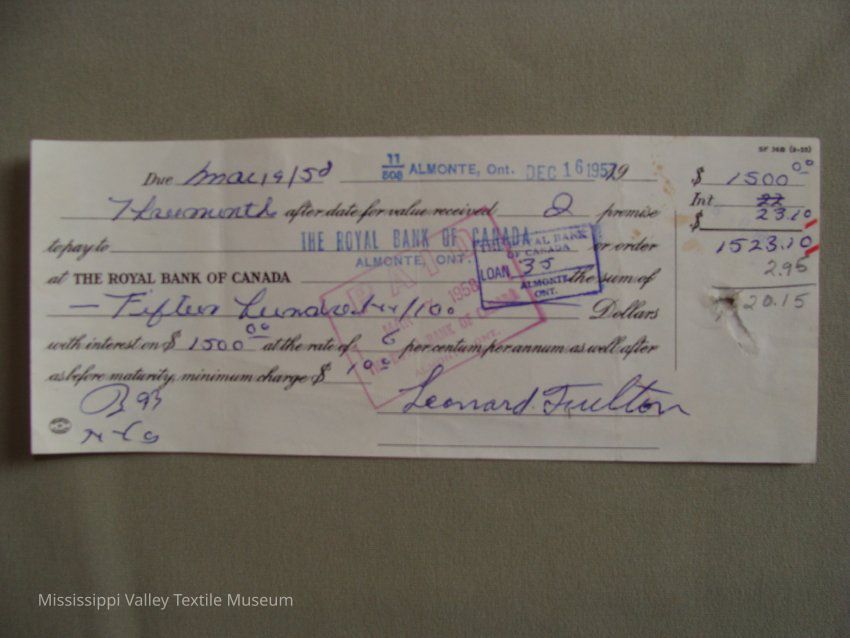 SF 74B (3-55)
Due Mar 19/58 11/808 ALMONTE, Ont. DEC 16 1957 19 $ 1500 00
Three months after date for value received I promise Int 23.10
to pay to THE ROYAL BANK OF CANADA or order $ 1523.10
ALMONTE, ONT. 2.95
at THE ROYAL BANK OF CANADA the sum of 20.15
Fifteen hundred xx/100 Dollars
with interest on $ 1500 00 at the rate of 6 per centum per annum as well after
as before maturity, minimum charge $ 1 00
Leonard Fulton
PAID
1958
ROYAL BANK OF CANADA
ALMONTE, ONT.
THE ROYAL BANK
OF CANADA
LOAN 35
ALMONTE
ONT.
Mississippi Valley Textile Museum